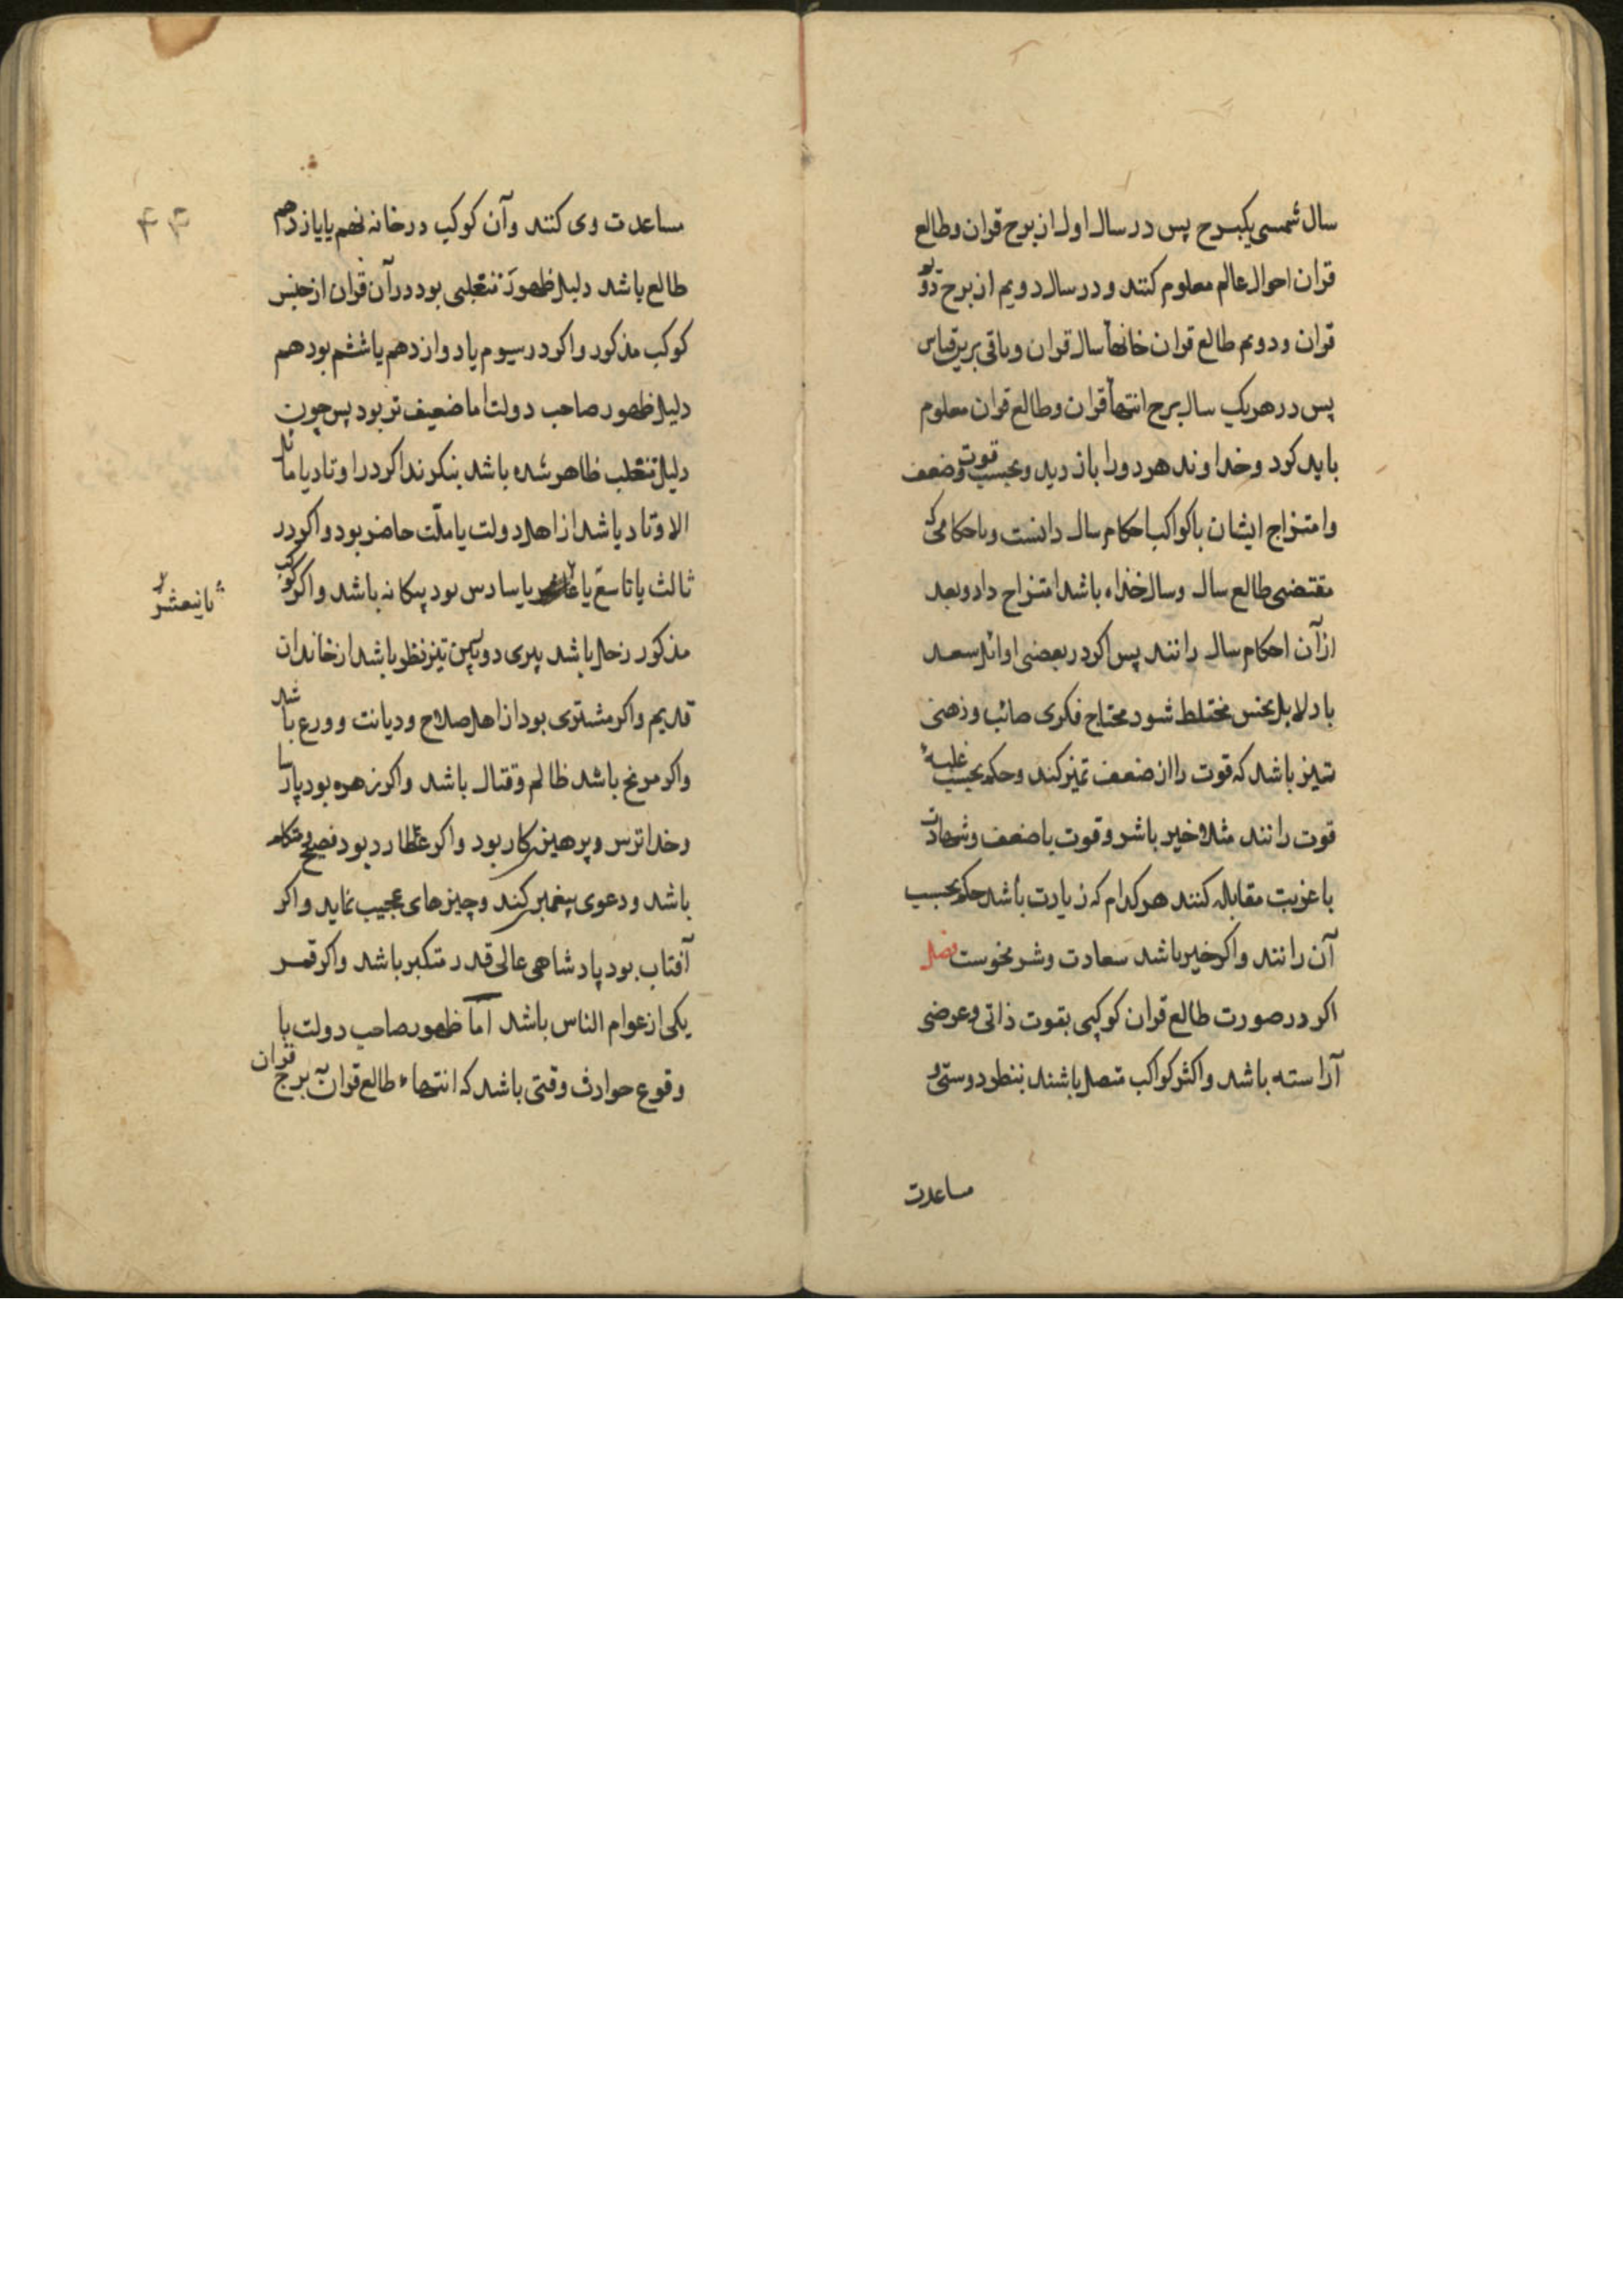 سال شمسی یکبرج پس در سال اول از برج قران و طالع
قران احوال عالم معلوم کنند و در سال دویم از برج دویم
قران و دوم طالع قران خانهٔ سال قران و باقی برین قیاس
پس در هر یک سال برج انتهاء قران و طالع قران معلوم
باید کرد و خداوند هر دو را باز دید و بحسب قوت و ضعف
و امتزاج ایشان با کواکب احکام سال دانست و با حکامی که
مقتضی طالع سال و سالخذاه باشد امتزاج داد و بعد
از آن احکام سال رانند پس اکر در بعضی اوائل سعد
با دلایل نحس مختلط شود محتاج فکری صائب و ذهنی
تیز باشد که قوت را از ضعف تمیز کند و حکم بحسب غلبهٔ
قوت رانند مثلا خیر با شر و قوت با ضعف و شهادت
با غربت مقابله کنند هر کدام که زیادت باشد حکم بحسب
آن رانند و اکر خیر باشد سعادت و شر نحوست فصل
اکر در صورت طالع قران کوکبی بقوت ذاتی و عرضی
آراسته باشد و اکثر کواکب متصل باشند بنظر دوستی و
مساعدت
۴۴
مساعدت وی کنند و آن کوکب در خانه نهم یا یازدهم
طالع باشد دلیل ظهور تغلبی بود در آن قران از جنس
کوکب مذکور و اکر در سیوم یا دوازدهم یا ششم بود هم
دلیل ظهور صاحب دولت اما ضعیف تر بود پس چون
دلیل تغلب ظاهر شده باشد بنکرند اکر در اوتاد یا مائل
الاوتاد باشد از اهل دولت یا ملّت حاضر بود و اکر در
ثالث یا تاسع یا یا سادس بود بیکانه باشد و اکر کوکب
ثانیعشر
مذکور زحل باشد پیری دوربین تیز نظر باشد از خاندان
قدیم و اکر مشتری بود از اهل صلاح و دیانت و ورع باشد
و اکر مریخ باشد ظالم و قتال باشد و اکر زهره بود پارسا
و خدا ترس و پرهیز کار بود و اکر عطارد بود فصیح و متکلم
باشد و دعوی پیغمبر کند و چیزهای عجیب نماید و اکر
آفتاب بود پادشاهی عالی قدر متکبر باشد و اکر قمر
یکی از عوام الناس باشد اما ظهور صاحب دولت با
وقوع حوادث وقتی باشد که انتهاء طالع قران به برج قران